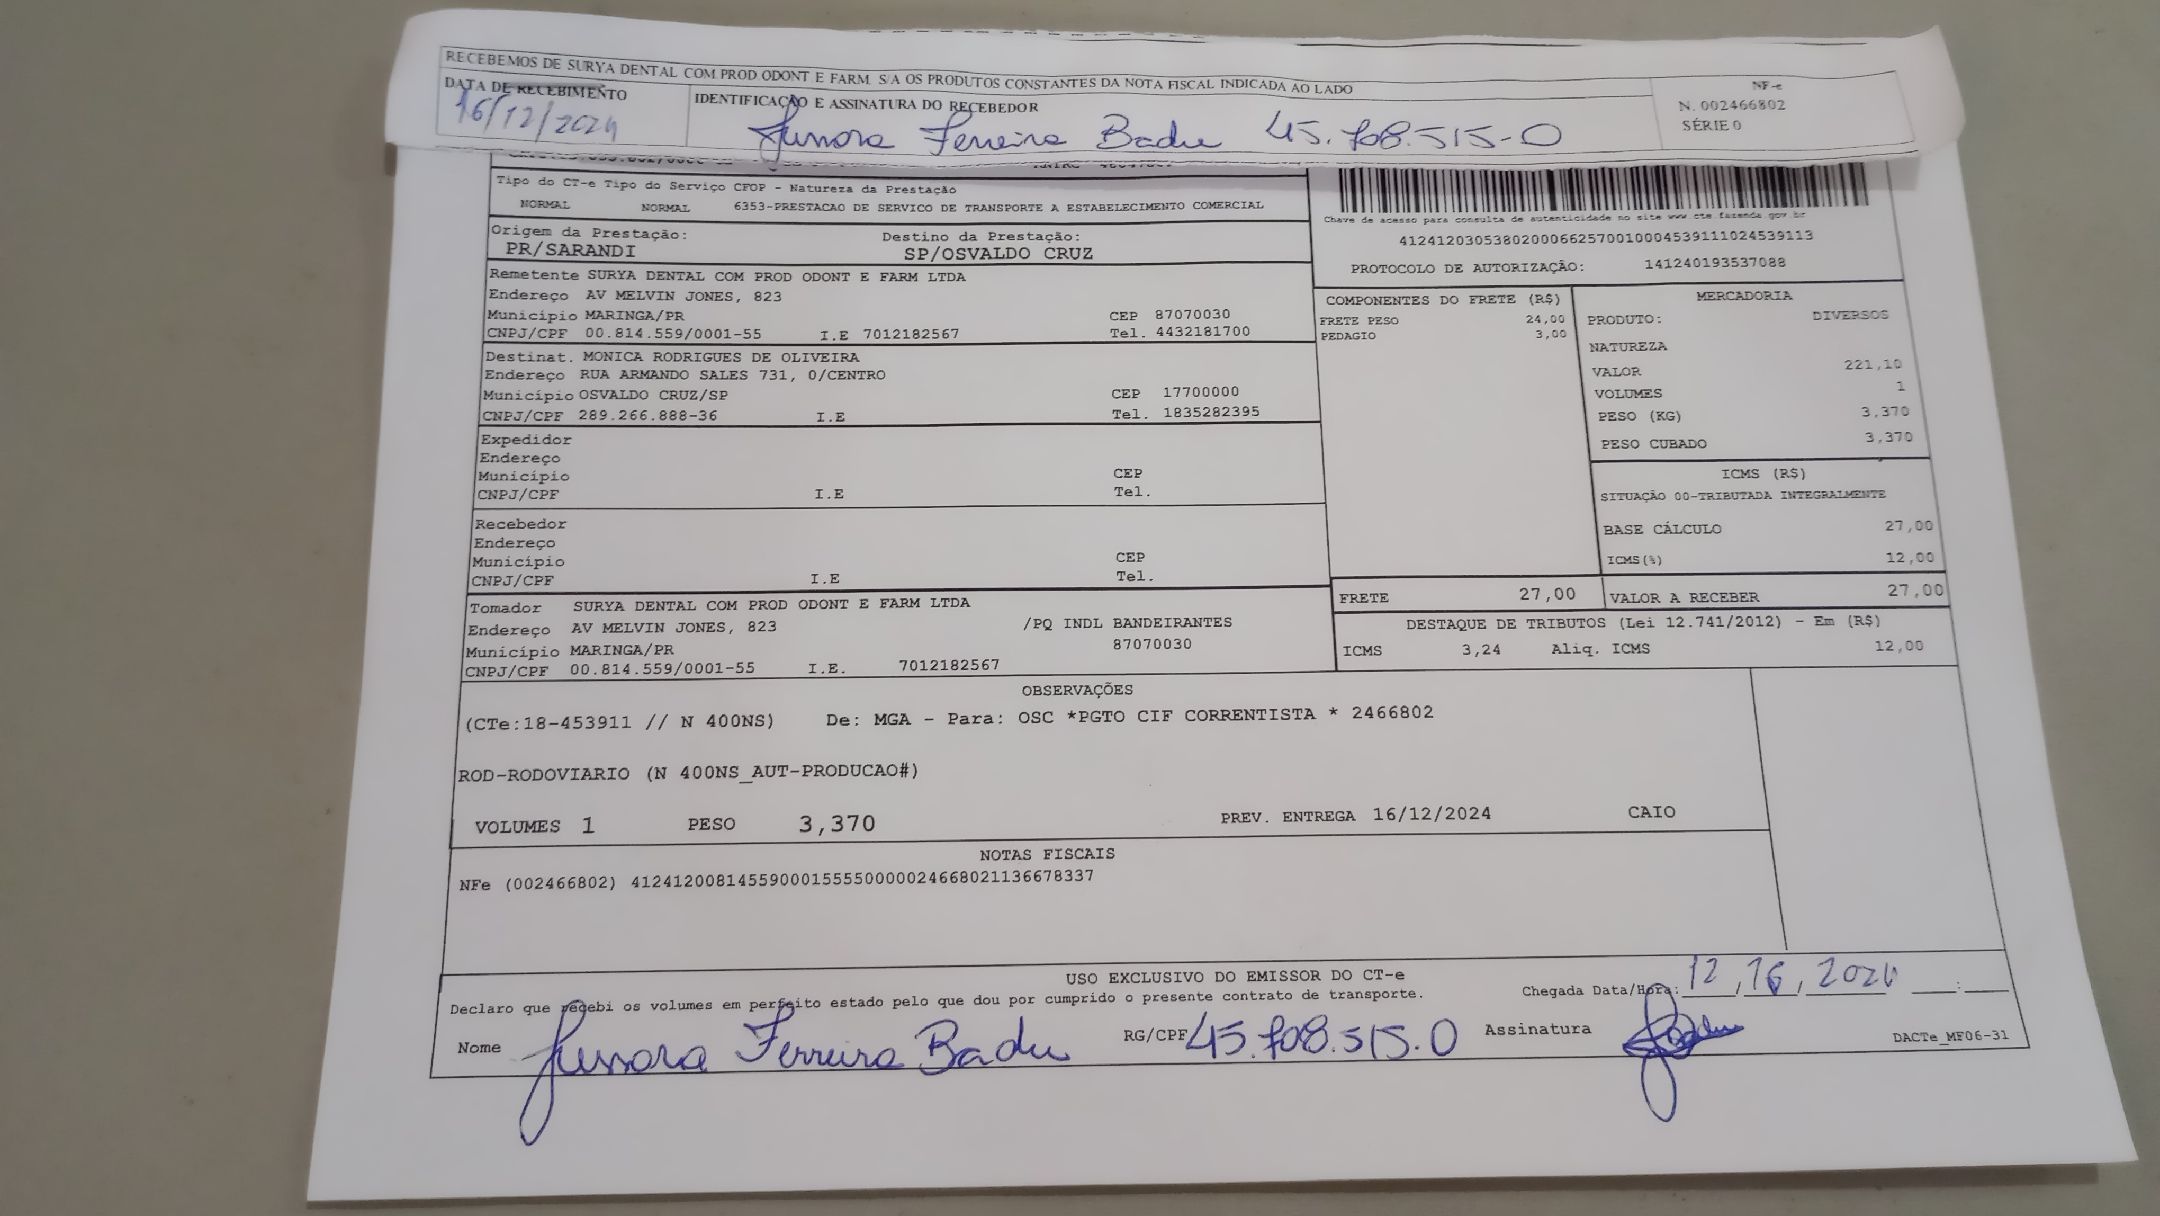 RECEBEMOS DE SURYA DENTAL COM PROD ODONT E FARM S/A OS PRODUTOS CONSTANTES DA NOTA FISCAL INDICADA AO LADO
DATA DE RECEBIMENTO
16/12/2024
IDENTIFICAÇÃO E ASSINATURA DO RECEBEDOR
Jussara Ferreira Badu 45.708.515-0
NF-e
N. 002466802
SÉRIE 0
Tipo do CT-e Tipo do Serviço CFOP - Natureza da Prestação
NORMAL NORMAL 6353-PRESTACAO DE SERVICO DE TRANSPORTE A ESTABELECIMENTO COMERCIAL
Origem da Prestação: Destino da Prestação:
PR/SARANDI SP/OSVALDO CRUZ
Chave de acesso para consulta de autenticidade no site www.cte.fazenda.gov.br
41241203053802000662570010004539111024539113
PROTOCOLO DE AUTORIZAÇÃO: 141240193537088
Remetente SURYA DENTAL COM PROD ODONT E FARM LTDA
Endereço AV MELVIN JONES, 823
Município MARINGA/PR CEP 87070030
CNPJ/CPF 00.814.559/0001-55 I.E 7012182567 Tel. 4432181700
Destinat. MONICA RODRIGUES DE OLIVEIRA
Endereço RUA ARMANDO SALES 731, 0/CENTRO
Município OSVALDO CRUZ/SP CEP 17700000
CNPJ/CPF 289.266.888-36 I.E Tel. 1835282395
Expedidor
Endereço
Município CEP
CNPJ/CPF I.E Tel.
Recebedor
Endereço
Município CEP
CNPJ/CPF I.E Tel.
Tomador SURYA DENTAL COM PROD ODONT E FARM LTDA
Endereço AV MELVIN JONES, 823 /PQ INDL BANDEIRANTES
Município MARINGA/PR 87070030
CNPJ/CPF 00.814.559/0001-55 I.E. 7012182567
COMPONENTES DO FRETE (R$)
FRETE PESO 24,00
PEDAGIO 3,00
MERCADORIA
PRODUTO: DIVERSOS
NATUREZA
VALOR 221,10
VOLUMES 1
PESO (KG) 3,370
PESO CUBADO 3,370
ICMS (R$)
SITUAÇÃO 00-TRIBUTADA INTEGRALMENTE
BASE CÁLCULO 27,00
ICMS(%) 12,00
FRETE 27,00 VALOR A RECEBER 27,00
DESTAQUE DE TRIBUTOS (Lei 12.741/2012) - Em (R$)
ICMS 3,24 Aliq. ICMS 12,00
OBSERVAÇÕES
(CTe:18-453911 // N 400NS) De: MGA - Para: OSC *PGTO CIF CORRENTISTA * 2466802
ROD-RODOVIARIO (N 400NS_AUT-PRODUCAO#)
VOLUMES 1 PESO 3,370 PREV. ENTREGA 16/12/2024 CAIO
NOTAS FISCAIS
NFe (002466802) 41241200814559000155550000024668021136678337
USO EXCLUSIVO DO EMISSOR DO CT-e
Declaro que recebi os volumes em perfeito estado pelo que dou por cumprido o presente contrato de transporte.
Chegada Data/Hora: 12, 16, 2024 __:__
Nome Jussara Ferreira Badu RG/CPF 45.708.515.0 Assinatura
DACTe_MF06-31